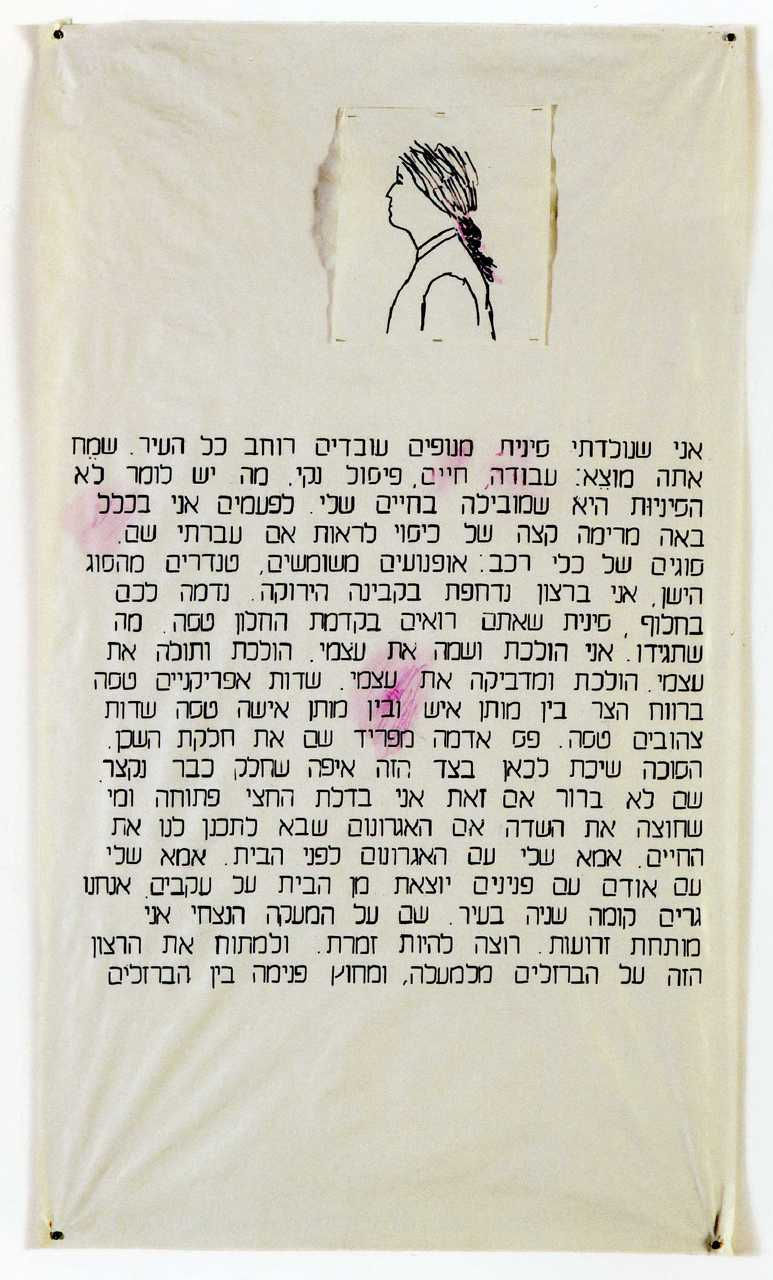 אני שנולדתי סינית מנופים עובדים רוחב כל העיר. שמֵח
אתה מוצֵא: עבודה, חיים, פיסול נקי. מה יש לומר לא
הסיניוּת היא שמובילה בחיים שלי. לפעמים אני בכלל
באה מרימה קצה של כיסוי לראות אם עברתי שם.
סוגים של כלי רכב: אופנועים משומשים, טנדרים מהסוג
הישן, אני ברצון נדחפת בקבינה הירוקה. נדמה לכם
בחלוף, סינית שאתם רואים בקדמת החלון טסה. מה
שתגידו. אני הולכת ושמה את עצמי. הולכת ותולה את
עצמי. הולכת ומדביקה את עצמי. שדות אפריקניים טסה
ברווח הצר בין מותן איש ובין מותן אישה טסה שדות
צהובים טסה. פס אדמה מפריד שם את חלקת השכן.
הסוכה שיכת לכאן בצד הזה איפה שחלק כבר נקצר.
שם לא ברור אם זאת אני בדלת החצי פתוחה ומי
שחוצה את השדה אם האגרונום שבא לתכנן לנו את
החיים. אמא שלי עם האגרונום לפני הבית. אמא שלי
עם אודם עם פנינים יוצאת מן הבית על עקבים. אנחנו
גרים קומה שניה בעיר. שם על המעקה הנצחי אני
מותחת זרועות. רוצה להיות זמרת. ולמתוח את הרצון
הזה על הברזלים מלמעלה, ומחוץ פנימה בין הברזלים